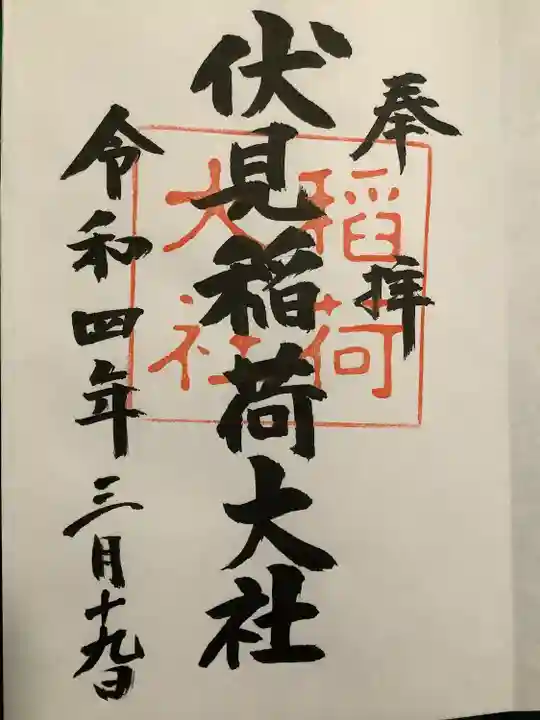 奉拝
伏見稲荷大社
令和四年三月十九日
稲荷
大社